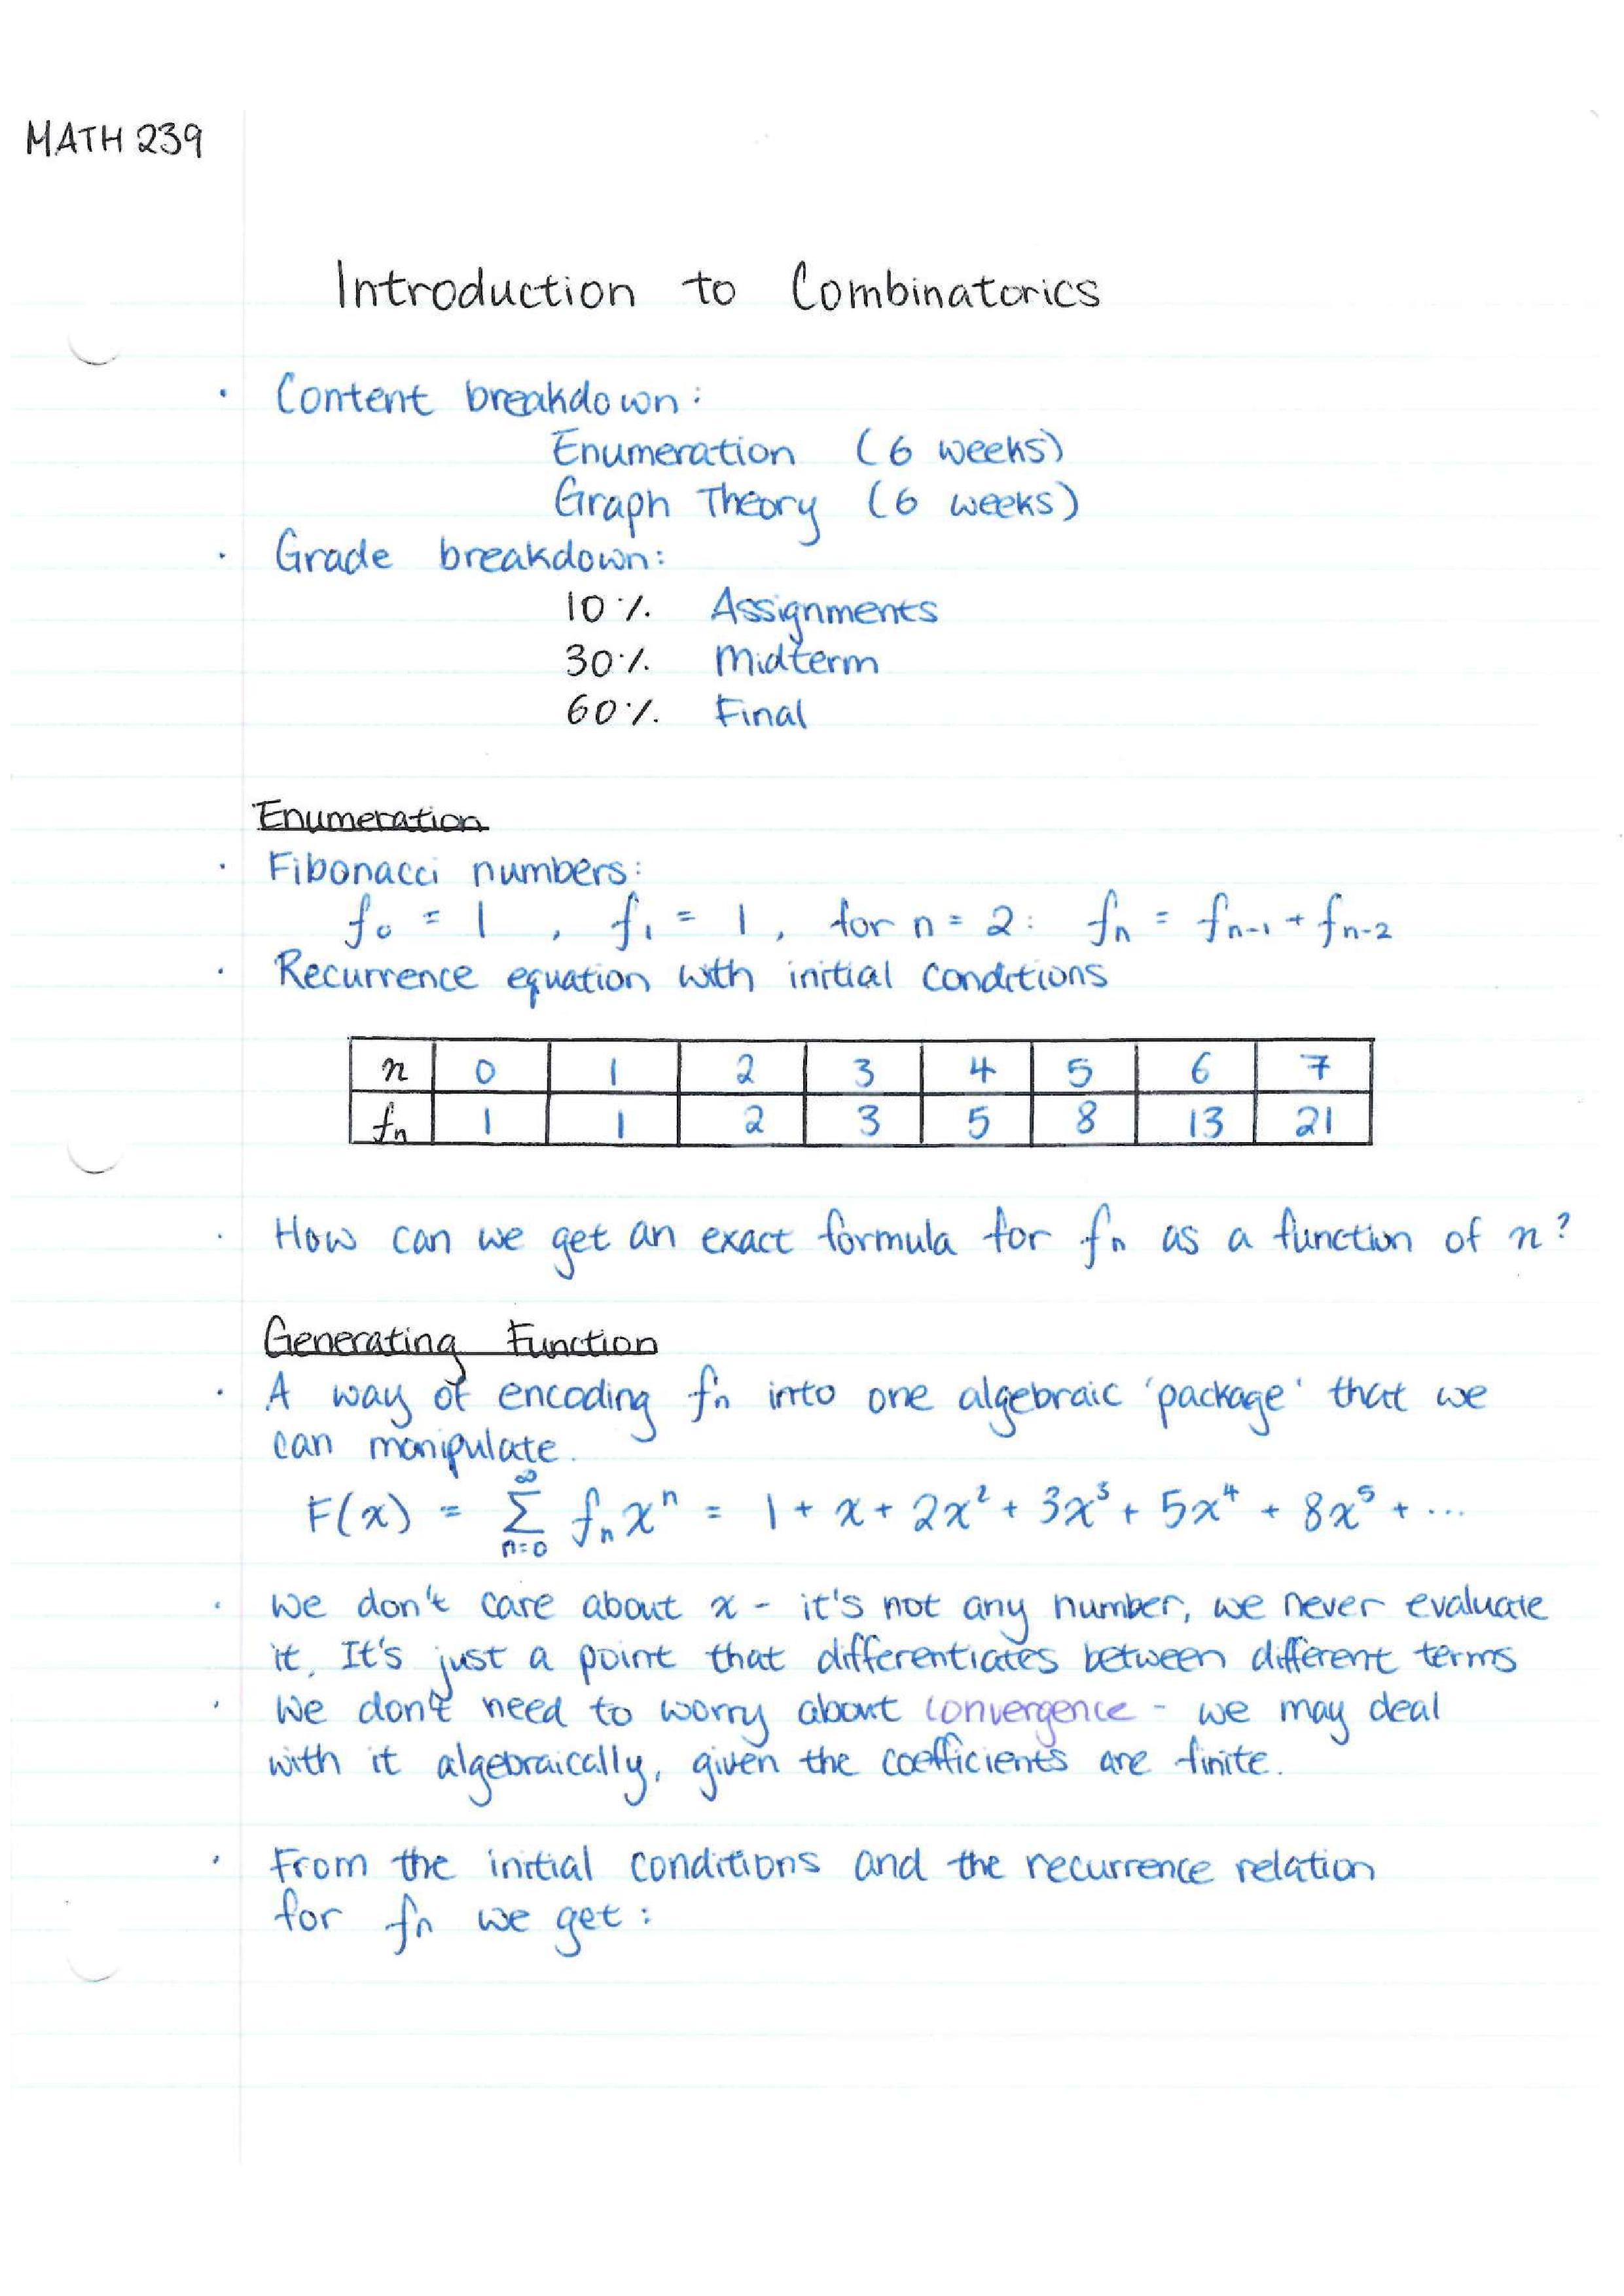 MATH 239
Introduction to Combinatorics
· Content breakdown:
Enumeration (6 weeks)
Graph Theory (6 weeks)
· Grade breakdown:
10% Assignments
30% Midterm
60% Final
Enumeration
· Fibonacci numbers:
f₀ = 1 , f₁ = 1 , for n = 2: fₙ = fₙ₋₁ + fₙ₋₂
· Recurrence equation with initial conditions
n 0 1 2 3 4 5 6 7
fₙ 1 1 2 3 5 8 13 21
· How can we get an exact formula for fₙ as a function of n?
Generating Function
· A way of encoding fₙ into one algebraic 'package' that we
can manipulate.
F(x) = ∑ₙ₌₀^∞ fₙxⁿ = 1 + x + 2x² + 3x³ + 5x⁴ + 8x⁵ + ...
· We don't care about x - it's not any number, we never evaluate
it. It's just a point that differentiates between different terms
· We don't need to worry about convergence - we may deal
with it algebraically, given the coefficients are finite.
· From the initial conditions and the recurrence relation
for fₙ we get: